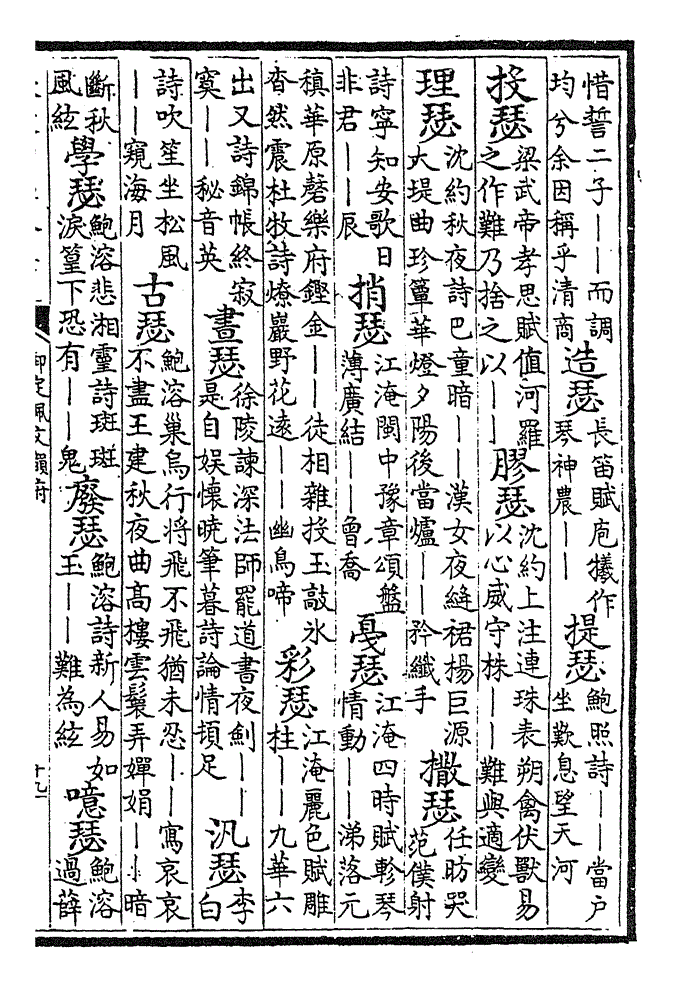 惜誓二子——而調均兮余因稱乎清商造瑟長笛賦庖犧作琴神農——提瑟鮑照詩——當戶坐歎息望天河
投瑟梁武帝孝思賦值河羅之作難乃捨之以——膠瑟沈約上注連珠表朔禽伏獸易以心威守株——難與適變
理瑟沈約秋夜詩巴童暗——漢女夜縫裙楊巨源大堤曲珍簟華燈夕陽後當爐——矜纖手撒瑟任昉哭范僕射
詩寧知安歌日非君——辰捎瑟江淹閩中豫章頌盤薄廣結——曾喬戞瑟江淹四時賦軫琴情動——涕落元
稹華原磬樂府鏗金——徒相雜投玉敲冰杳然震杜牧詩燎巖野花遠——幽鳥啼彩瑟江淹麗色賦雕柱——九華六
出又詩錦帳終寂寞——秘音英晝瑟徐陵諫深法師罷道書夜劍——是自娛懷曉筆暮詩論情頓足汎瑟李白
詩吹笙坐松風——窺海月古瑟鮑溶巢烏行将飛不飛猶未忍——寫哀哀不盡王建秋夜曲高樓雲鬟弄嬋娟——暗
斷秋風絃學瑟鮑溶悲湘靈詩斑斑淚篁下恐有——鬼廢瑟鮑溶詩新人易如玉——難為絃噫瑟鮑溶過薛
御定佩文韻府